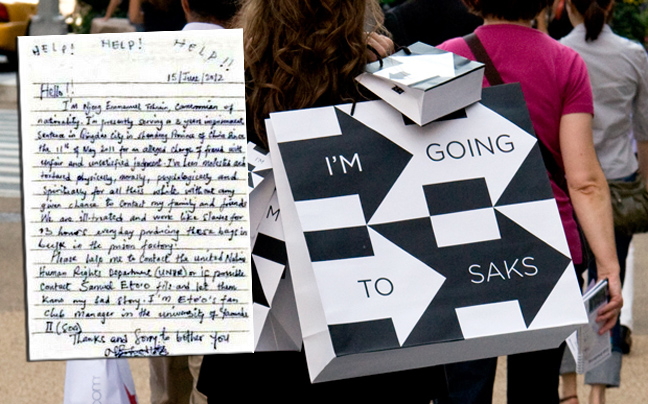 HELP! HELP! HELP!!
15/June/2012
Hello!!
I'm Njong Emmanuel Cameroonian of
nationality. I'm presently serving a 3 years imprisonment
sentence in Qingdao City in Shandong Province of China since
the 11th of May 2011 for an alleged charge of fraud with
unfair and unjustified judgment. I've been molested and
tortured physically, morally, psychologically and
spiritually for all this while without any
given chance to contact my family and friends
We are ill-treated and work like slaves for
13 hours everyday producing these bags in
bulk in the prison factory.
Please help me to contact the united Nations
Human Rights Department (UNHR) or if possible
contact Samuel Eto'o fils and let them
know my sad story. I'm Eto'o's fan
club manager in the university of Yaounde
II (Soa)
Thanks and sorry to bother you
I'M GOING
TO SAKS
M
.com